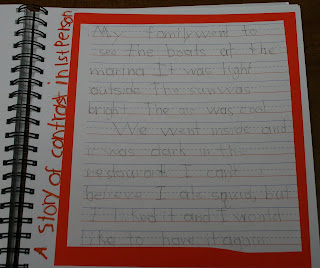 A Story of contrast in 1st Person
My family went to
see the boats at the
marina It was light
outside The sun was
bright. The air was cool.
We went inside and
it was dark in the
restaurant. I can't
believe I ate squid, but
I liked it and I would
like to have it again